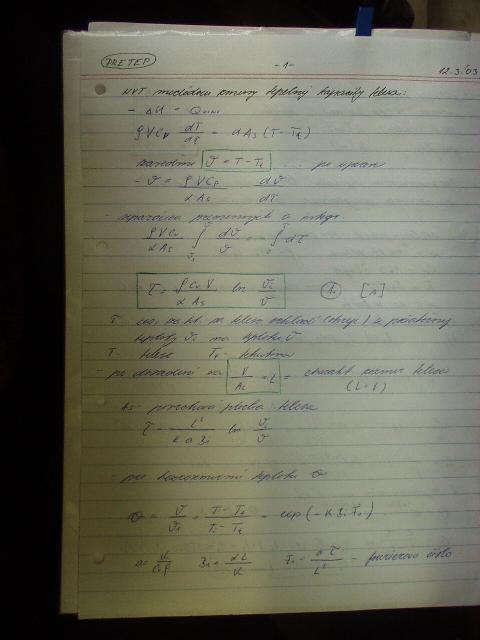 PRETEP
-1-
12.3.'03
NVT metódou zmeny tepelnej kapacity telesa:
- ΔU = Q
ρVCp dT/dτ = αAs (T - Tt)
zavedme ϑ = T - Tt ... po úprave
- ϑ = ρVCp/αAs dϑ/dτ
- separácia premenných a integr.
ρVCv/αAs ∫ dϑ/ϑ = - ∫ dτ
τ = ρ Cv V/α As ln ϑi/ϑ 1. [s]
τ čas, za kt. sa teleso ochladí (ohreje) z
teploty ϑi na teplotu ϑ
T - teleso Tt - tekutina
- po dosadení za V/As = L = charakt. rozmer telesa
(L = V)
As - povrchová plocha telesa
τ = L²/K a Bi ln ϑi/ϑ
- pre bezrozmernú teplotu Θ
Θ = ϑ/ϑi = T - Tt/Ti - Tt = exp(-K Bi Fo)
Bi = αL/
Fo = aτ/L² - Fourierovo číslo